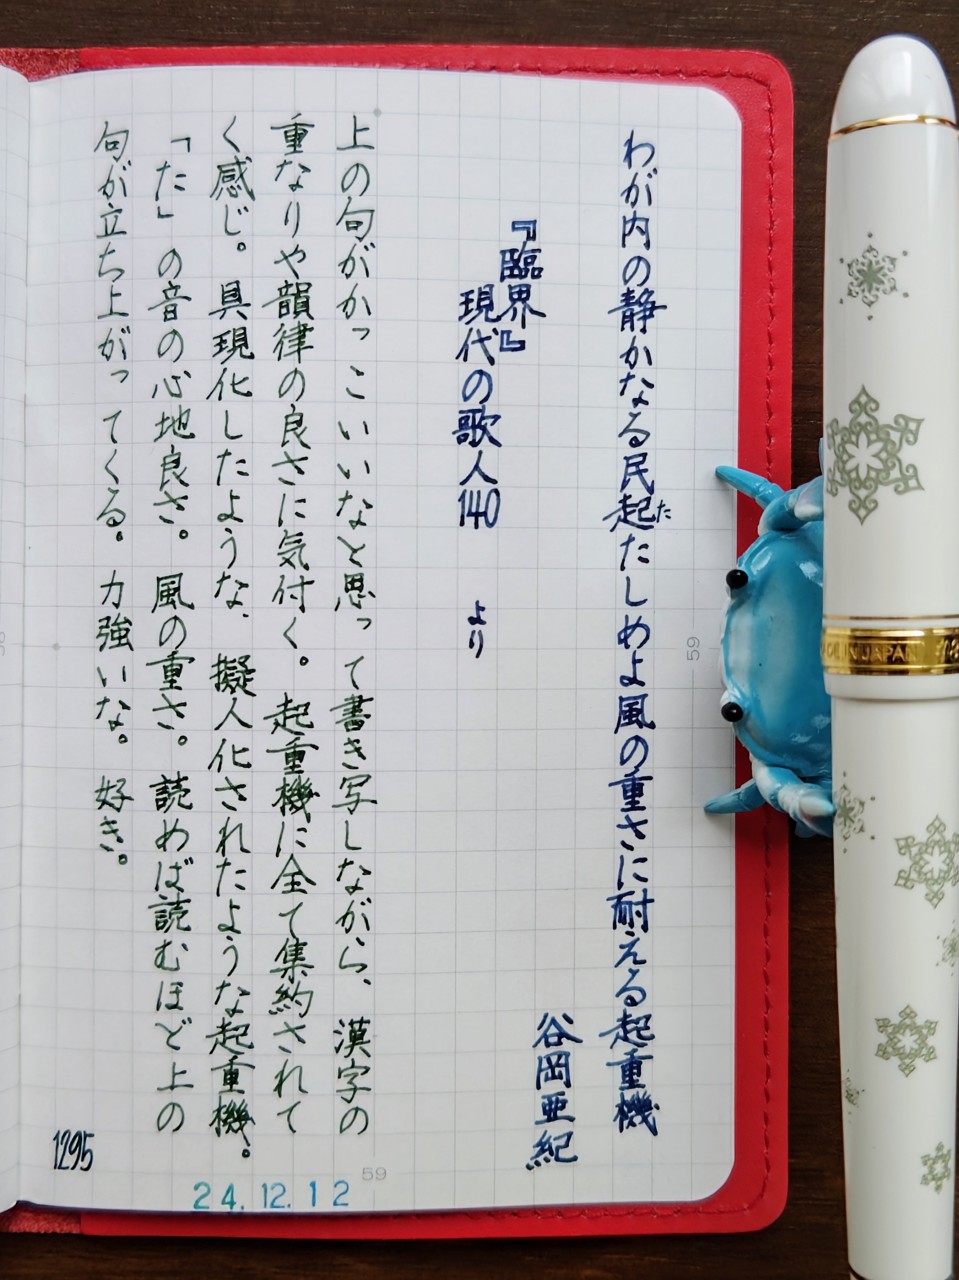 わが内の静かなる民起たしめよ風の重さに耐える起重機
た
谷岡亜紀
『臨界』
現代の歌人140 より
上の句がかっこいいなと思って書き写しながら、漢字の
重なりや韻律の良さに気付く。起重機に全て集約されて
く感じ。具現化したような、擬人化されたような起重機。
「た」の音の心地良さ。風の重さ。読めば読むほど上の
句が立ち上がってくる。力強いな。好き。
1295
24.12.12
59
59
IN JAPAN